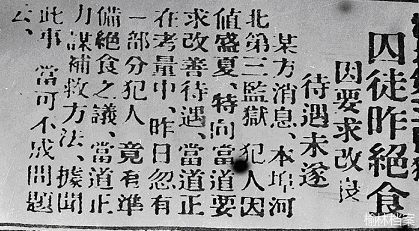 囚徒昨絕食
因要求改良
待遇未遂
某方消息、本埠河
北第三監獄、犯人因
値盛夏、特向當道要
求改善待遇、當道正
在考量中、昨日忽有
一部分犯人、竟有準
備絕食之議、當道正
力謀補救方法、據聞
此事、當可不成問題
云、
榆林档案